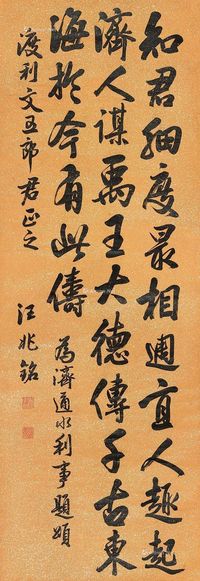 知君細度最相週宜人趣起
濟人謀禹王大德傳千古東
海於今有此儔 為濟通水利事題頌
渡利文五郎君正之 汪兆銘